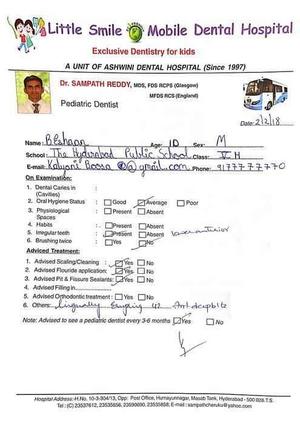 Little Smile Mobile Dental Hospital
Exclusive Dentistry for kids
A UNIT OF ASHWINI DENTAL HOSPITAL (Since 1997)
Dr. SAMPATH REDDY, MDS, FDS RCPS (Glasgow)
MFDS RCS-(England)
Pediatric Dentist
Date: 2/2/18
Name: Age: 10 Sex: M
School: The Hyderabad Public School Class: V H
E-mail: @gmail.com Phone:
On Examination:
1. Dental Caries in : (Cavities)
2. Oral Hygiene Status : Good Average Poor
3. Physiological Spaces : Present Absent
4. Habits : Present Absent
5. Irregular teeth : Present Absent
6. Brushing twice : Yes No
Adviced Treatment:
1. Advised Scaling/Cleaning : Yes No
2. Advised Flouride application: Yes No
3. Advised Pit & Fissure Sealants: Yes No
4. Advised Filling in
5. Advised Orthodontic treatment : Yes No
6. Others: Lingually
Note: Advised to see a pediatric dentist every 3-6 months Yes No
Hospital Address: H.No, 10-3-304/13, Opp: Post Office, Humayunnagar, Masab Tank, Hyderabad - 500 028 T.S.
Tel: (C) 23537612, 23535658, 23590690, 23535858, E-mail : sampathcheruku@yahoo.com